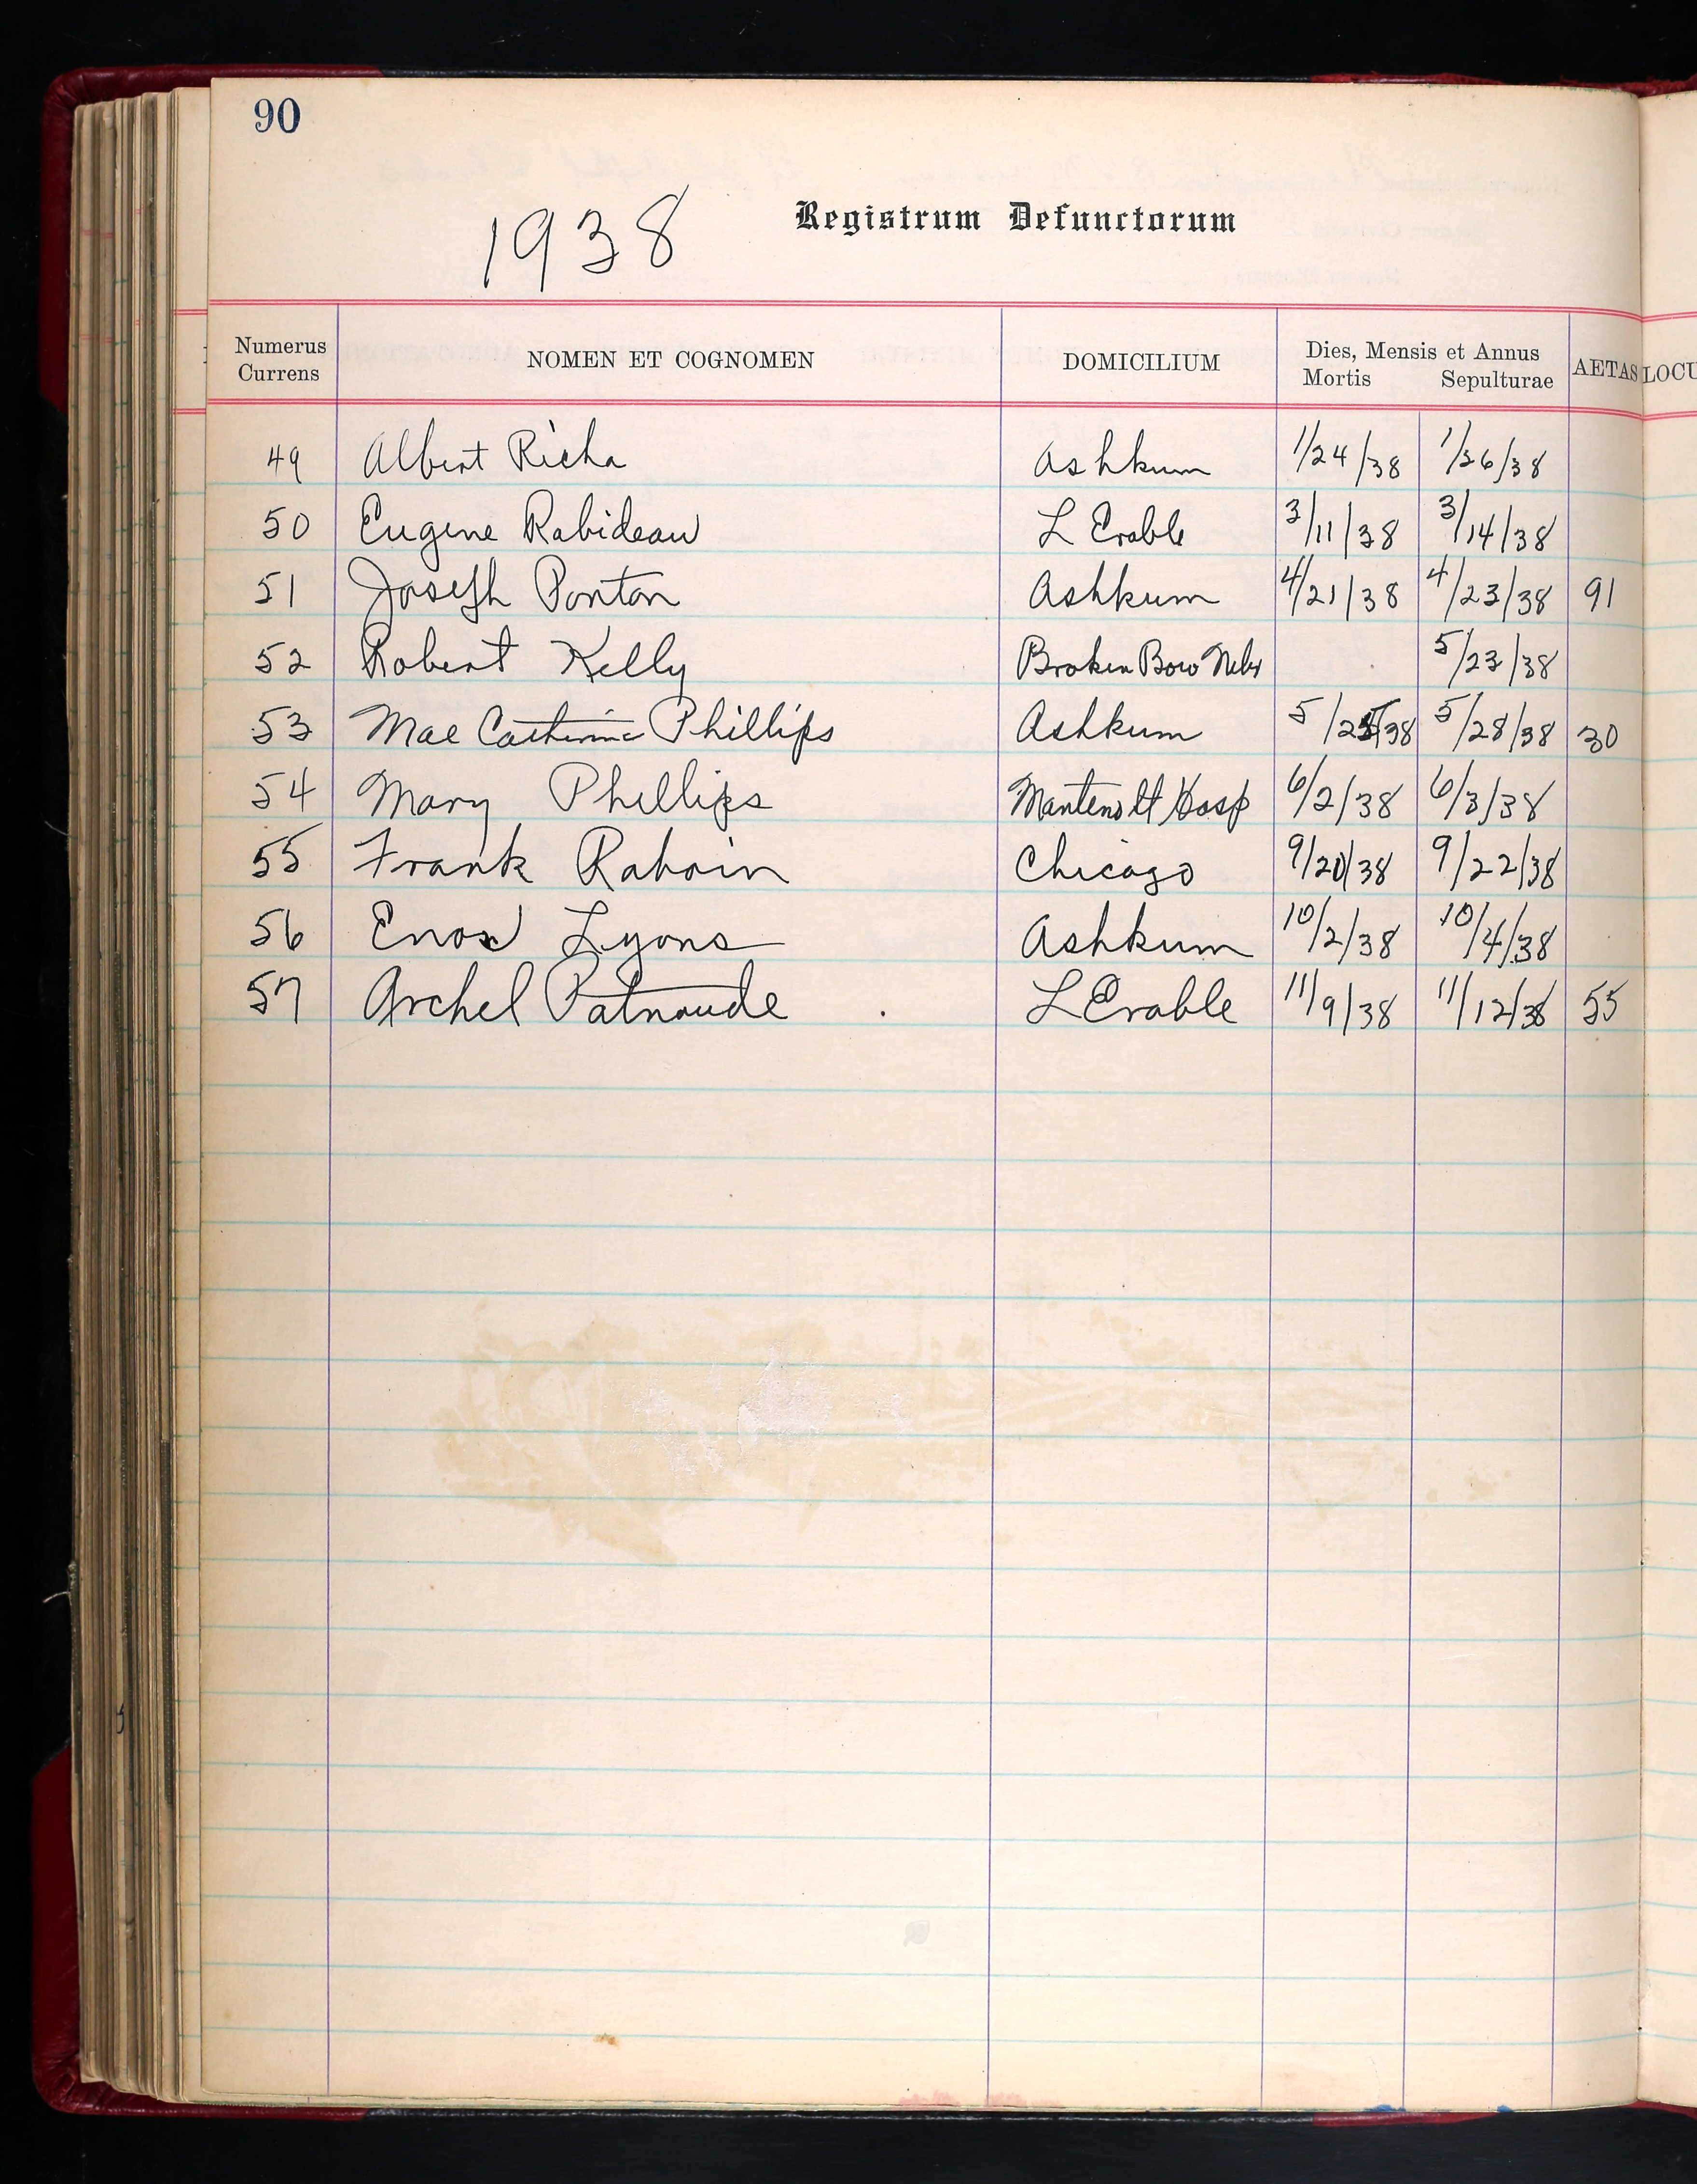 90
1938 Registrum Defunctorum
Numerus Currens NOMEN ET COGNOMEN DOMICILIUM Dies, Mensis et Annus Mortis Sepulturae AETAS LOCU
49 Albert Richa Ashkum 1/24/38 1/26/38
50 Eugene Rabideau L Erable 3/11/38 3/14/38
51 Joseph Ponton Ashkum 4/21/38 4/23/38 91
52 Robert Kelly Broken Bow Nebr 5/23/38
53 Mae Catherine Phillips Ashkum 5/25/38 5/28/38 30
54 Mary Phillips Manteno Hosp 6/2/38 6/3/38
55 Frank Raboin Chicago 9/20/38 9/22/38
56 Enos Lyons Ashkum 10/2/38 10/4/38
57 Archel Patnaude L Erable 11/9/38 11/12/38 55